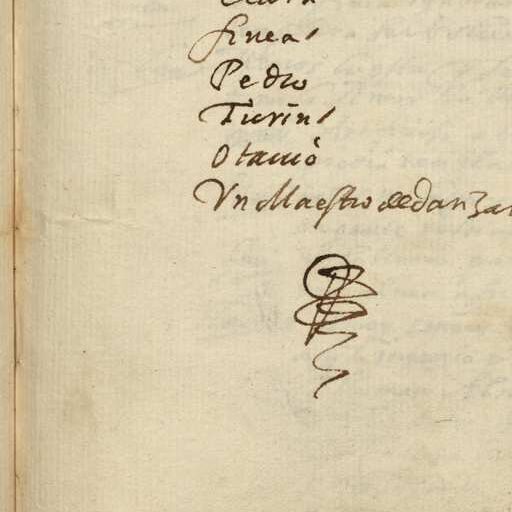 Clara
finea
Pedro
Turin
Otauio
Vn Maestro de danzar